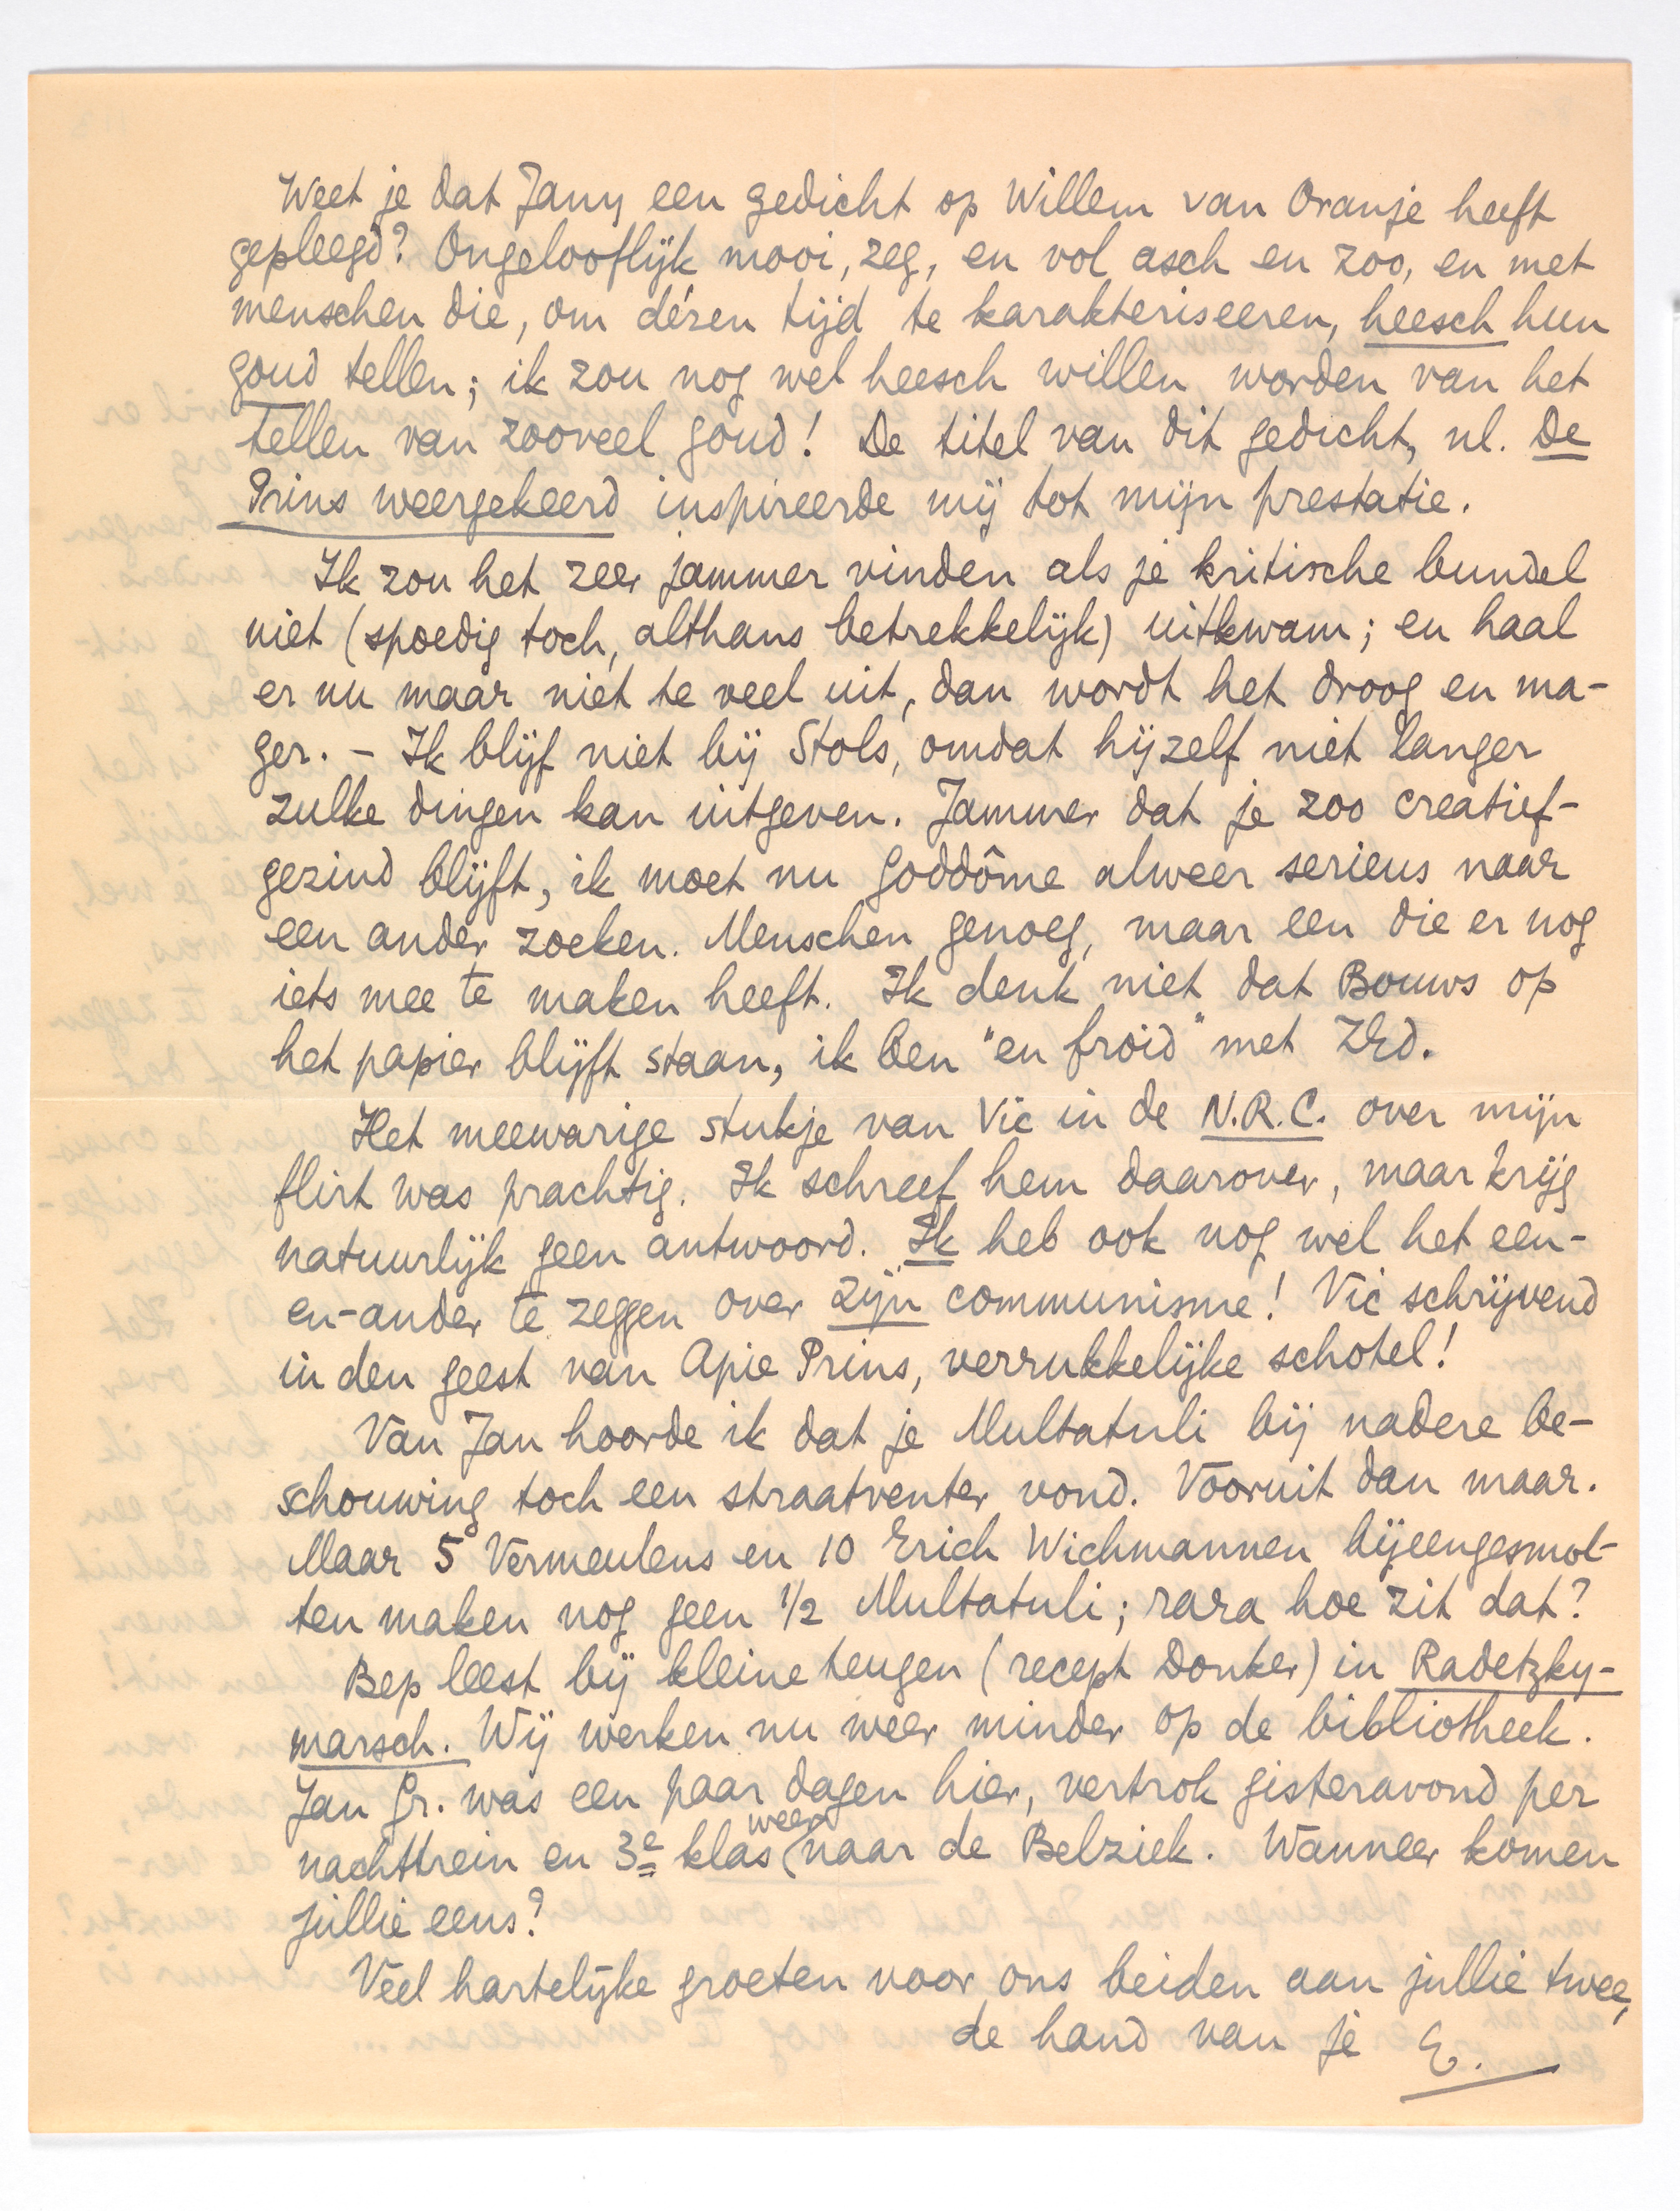 Weet je dat Jany een gedicht op Willem van Oranje heeft
gepleegd? Ongelooflijk mooi, zeg, en vol asch en zoo, en met
menschen die, om dézen tijd te karakteriseeren, heesch hun
goud tellen; ik zou nog wel heesch willen worden van het
tellen van zooveel goud! De titel van dit gedicht, nl. De
Prins weergekeerd inspireerde mij tot mijn prestatie.
Ik zou het zeer jammer vinden als je kritische bundel
niet (spoedig toch, althans betrekkelijk) uitkwam; en haal
er nu maar niet te veel uit, dan wordt het droog en ma-
ger. - Ik blijf niet bij Stols, omdat hijzelf niet langer
zulke dingen kan uitgeven. Jammer dat je zoo creatief-
gezind blijft, ik moet nu goddôme alweer serieus naar
een ander zoeken. Menschen genoeg, maar een die er nog
iets mee te maken heeft. Ik denk niet dat Bouws op
het papier blijft staan, ik ben "en froid" met Zijd.
Het meewarige stukje van Vic in de N.R.C. over mijn
flirt was prachtig. Ik schreef hem daarover, maar krijg
natuurlijk geen antwoord. Ik heb ook nog wel het een-
en-ander te zeggen over zijn communisme! Vic schrijvend
in den geest van Apie Prins, verrukkelijke schotel!
Van Jan hoorde ik dat je Multatuli bij nadere be-
schouwing toch een straatventer vond. Vooruit dan maar.
Maar 5 Vermeulens en 10 Erich Wichmannen bijeengesmol-
ten maken nog geen 1/2 Multatuli; rara hoe zit dat?
Bep leest bij kleine teugen (recept Donker) in Radetzky-
marsch. Wij werken nu weer minder op de bibliotheek.
Jan Gr. was een paar dagen hier, vertrok gisteravond per
nachttrein en 3e klas weer naar de Belziek. Wanneer komen
jullie eens?
Veel hartelijke groeten voor ons beiden aan jullie twee,
de hand van je E.